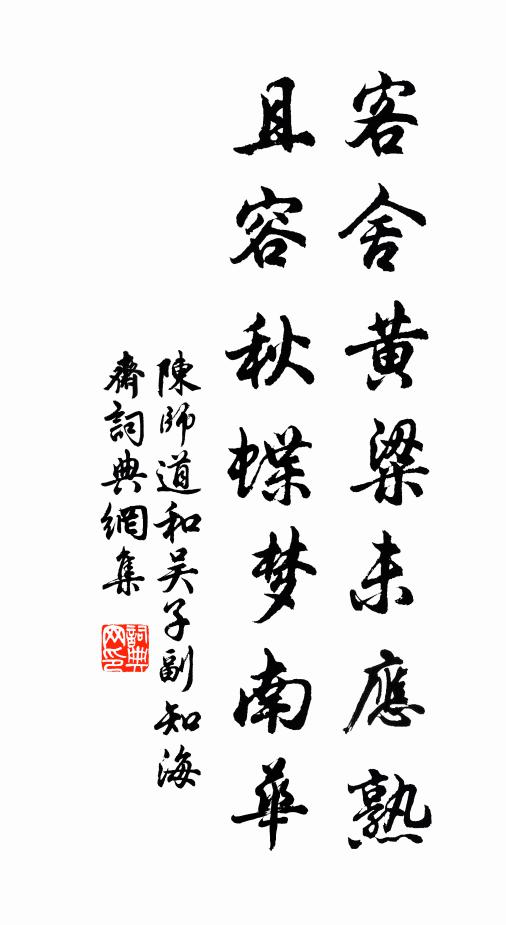 客舍黄粱未應熟
且容秋蝶梦南華
陳師道和吴子副知海
齋詞典網集
詞典
网印